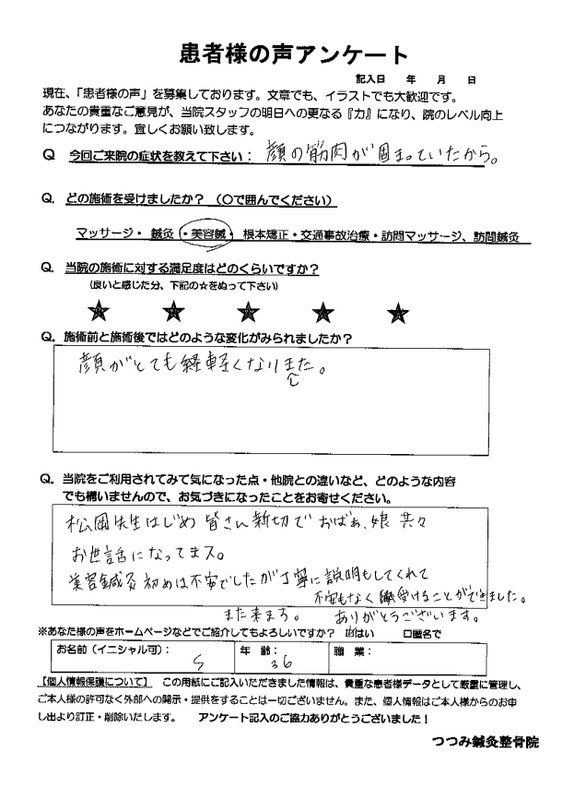 患者様の声アンケート
記入日　年　月　日
現在、「患者様の声」を募集しております。文章でも、イラストでも大歓迎です。
あなたの貴重なご意見が、当院スタッフの明日への更なる『力』になり、院のレベル向上
につながります。宜しくお願い致します。
Q 今回ご来院の症状を教えて下さい： 顔の筋肉が固まっていたから。
Q. どの施術を受けましたか？（〇で囲んでください）
マッサージ・ 鍼灸 ・美容鍼・ 根本矯正・交通事故治療・訪問マッサージ、訪問鍼灸
Q. 当院の施術に対する満足度はどのくらいですか？
（良いと感じた分、下記の☆をぬって下さい）
★ ★ ★ ★ ★
Q. 施術前と施術後ではどのような変化がみられましたか？
顔がとても軽くなりました。
Q. 当院をご利用されてみて気になった点・他院との違いなど、どのような内容
でも構いませんので、お気づきになったことをお寄せください。
松岡先生はじめ 皆さん 親切で おばぁ、娘 共々
お世話になってます。
美容鍼灸 初めは不安でしたが丁寧に説明もしてくれて
不安もなく 受けることができました。
また来まぅ。 ありがとうございます。
※あなた様の声をホームページなどでご紹介してもよろしいですか？ ☑はい □匿名で
お名前（イニシャル可）： S 年 齢： 36 職 業：
【個人情報保護について】 この用紙にご記入いただきました情報は、貴重な患者様データとして厳重に管理し、
ご本人様の許可なく外部への開示・提供をすることは一切ございません。また、個人情報はご本人様からのお申
し出より訂正・削除いたします。 アンケート記入のご協力ありがとうございました！
つつみ鍼灸整骨院